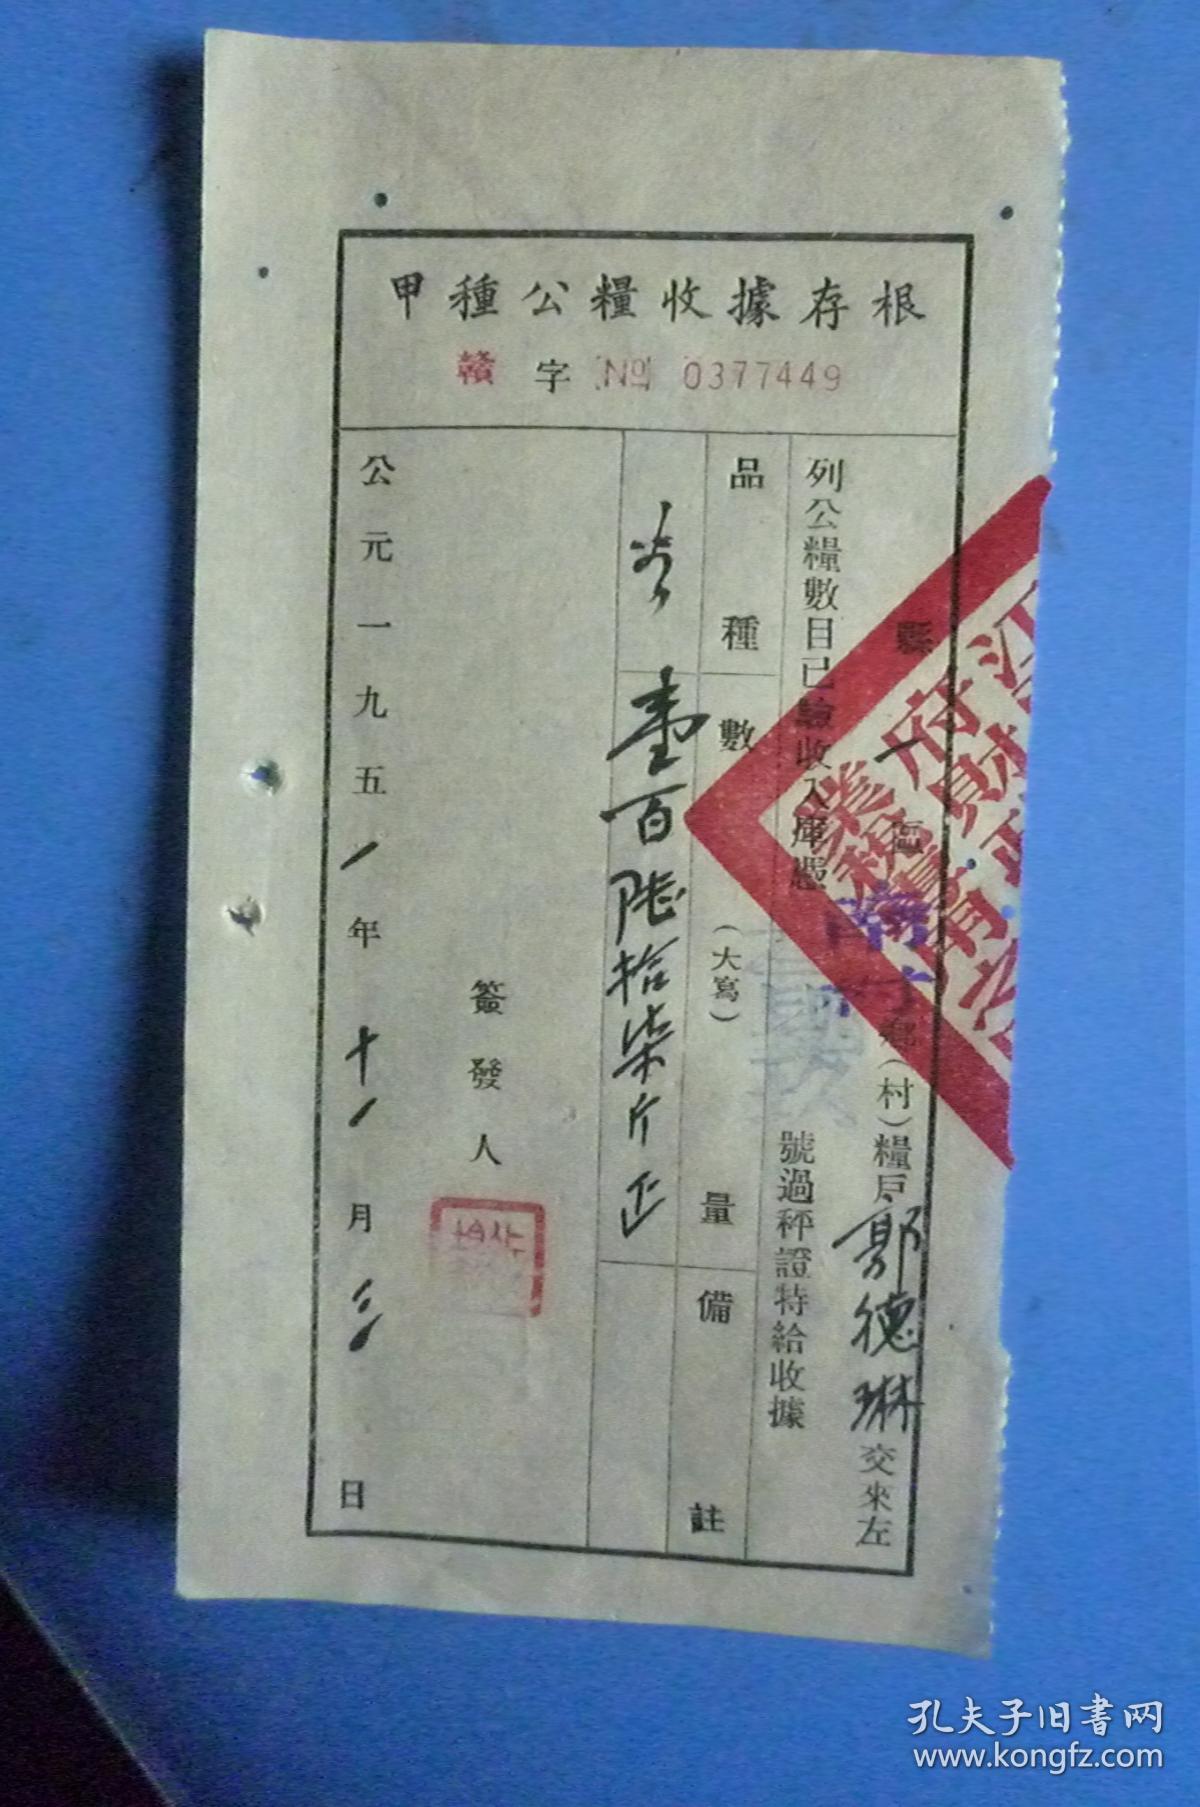 甲種公糧收據存根
贛 字 № 0377449
縣 一 區 南 鄉(村)糧戶 郭德琳 交來左
列公糧數目已驗收入庫憑
號過秤證特給收據
品種 數量(大寫) 備註
谷 壹百陸拾柒斤正
簽發人
公元一九五一年十一月三日
孔夫子旧书网
www.kongfz.com